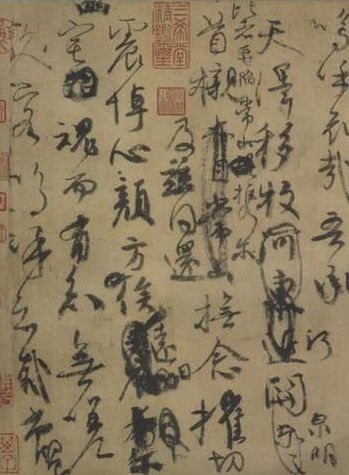 嗚呼哀哉吾承
天澤移牧河關泉明
比者再陷常山攜尔
首櫬及茲同還撫念摧切
震悼心顏方俟遠日
宅魂而有知無嗟
久客嗚呼哀哉尚饗
三希堂精鑑璽